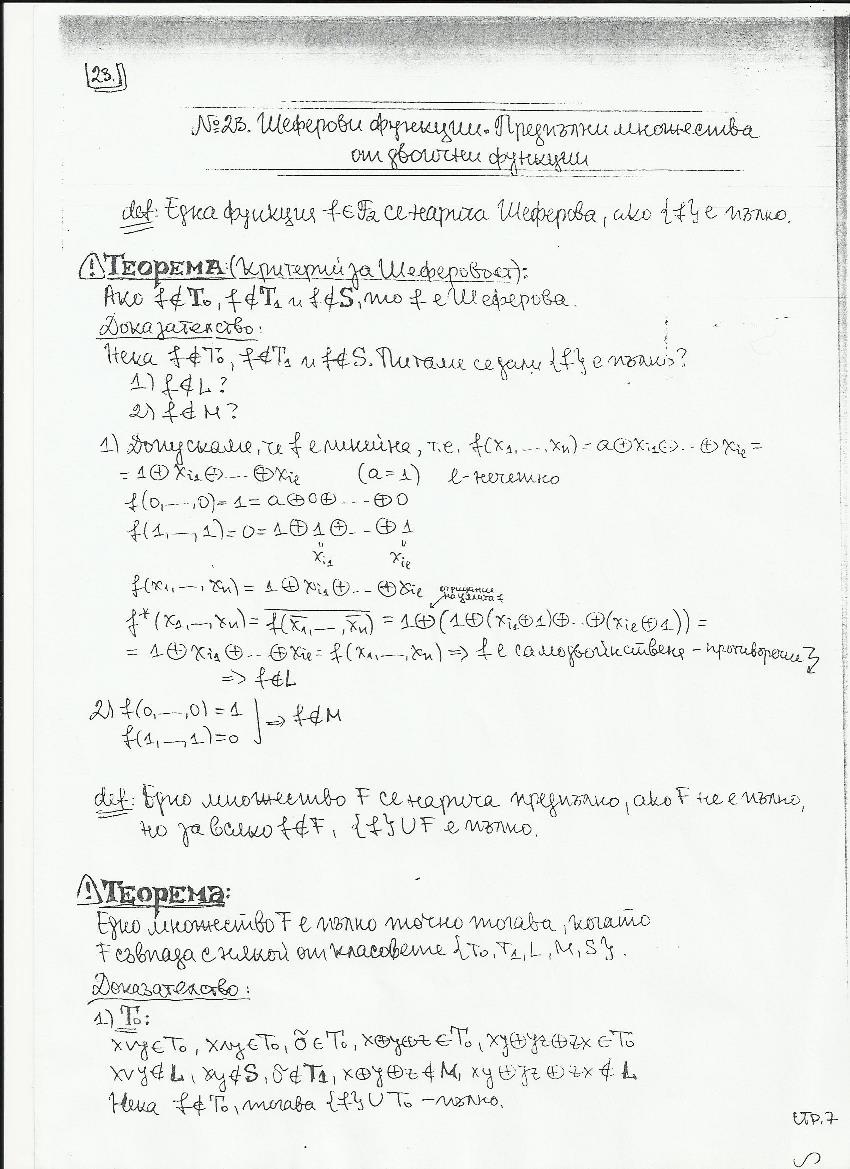 23.
№23. Шеферови функции. Предпълни множества
от двоични функции
def: Една функция f∈F₂ се нарича Шеферова, ако {f} е пълно.
! ТЕОРЕМА: (Критерий за Шеферовост):
Ако f∉T₀, f∉T₁ и f∉S, то f е Шеферова.
Доказателство:
Нека f∉T₀, f∉T₁ и f∉S. Питаме се дали {f} е пълно?
1) f∉L?
2) f∉M?
1) Допускаме, че f е линейна, т.е. f(x₁,...,xₙ)=a⊕xᵢ₁⊕...⊕xᵢₑ=
=1⊕xᵢ₁⊕...⊕xᵢₑ (a=1) l-нечетно
f(0,...,0)=1=a⊕0⊕...⊕0
f(1,...,1)=0=1⊕1⊕...⊕1
xᵢ₁ xᵢₑ
f(x₁,...,xₙ)=1⊕xᵢ₁⊕...⊕xᵢₑ отрицание
f*(x₁,...,xₙ)=f(x̅₁,...,x̅ₙ)=1⊕(1⊕(xᵢ₁⊕1)⊕...⊕(xᵢₑ⊕1))=
=1⊕xᵢ₁⊕...⊕xᵢₑ=f(x₁,...,xₙ)=> f е самодвойнствена - противоречие
=> f∉L
2) f(0,...,0)=1
f(1,...,1)=0 => f∉M
def: Едно множество F се нарича предпълно, ако F не е пълно,
но за всяко f∉F, {f}∪F е пълно.
! ТЕОРЕМА:
Едно множество F е пълно точно тогава, когато
F съвпада с някой от класовете {T₀,T₁,L,M,S}.
Доказателство:
1) T₀:
x∨y∈T₀, x∧y∈T₀, õ∈T₀, x⊕y⊕z∈T₀, xy⊕yz⊕zx∈T₀
x∨y∉L, xy∉S, õ∉T₁, x⊕y⊕z∉M, xy⊕yz⊕zx∉L
Нека f∉T₀, тогава {f}∪T₀ - пълно.
стр.7